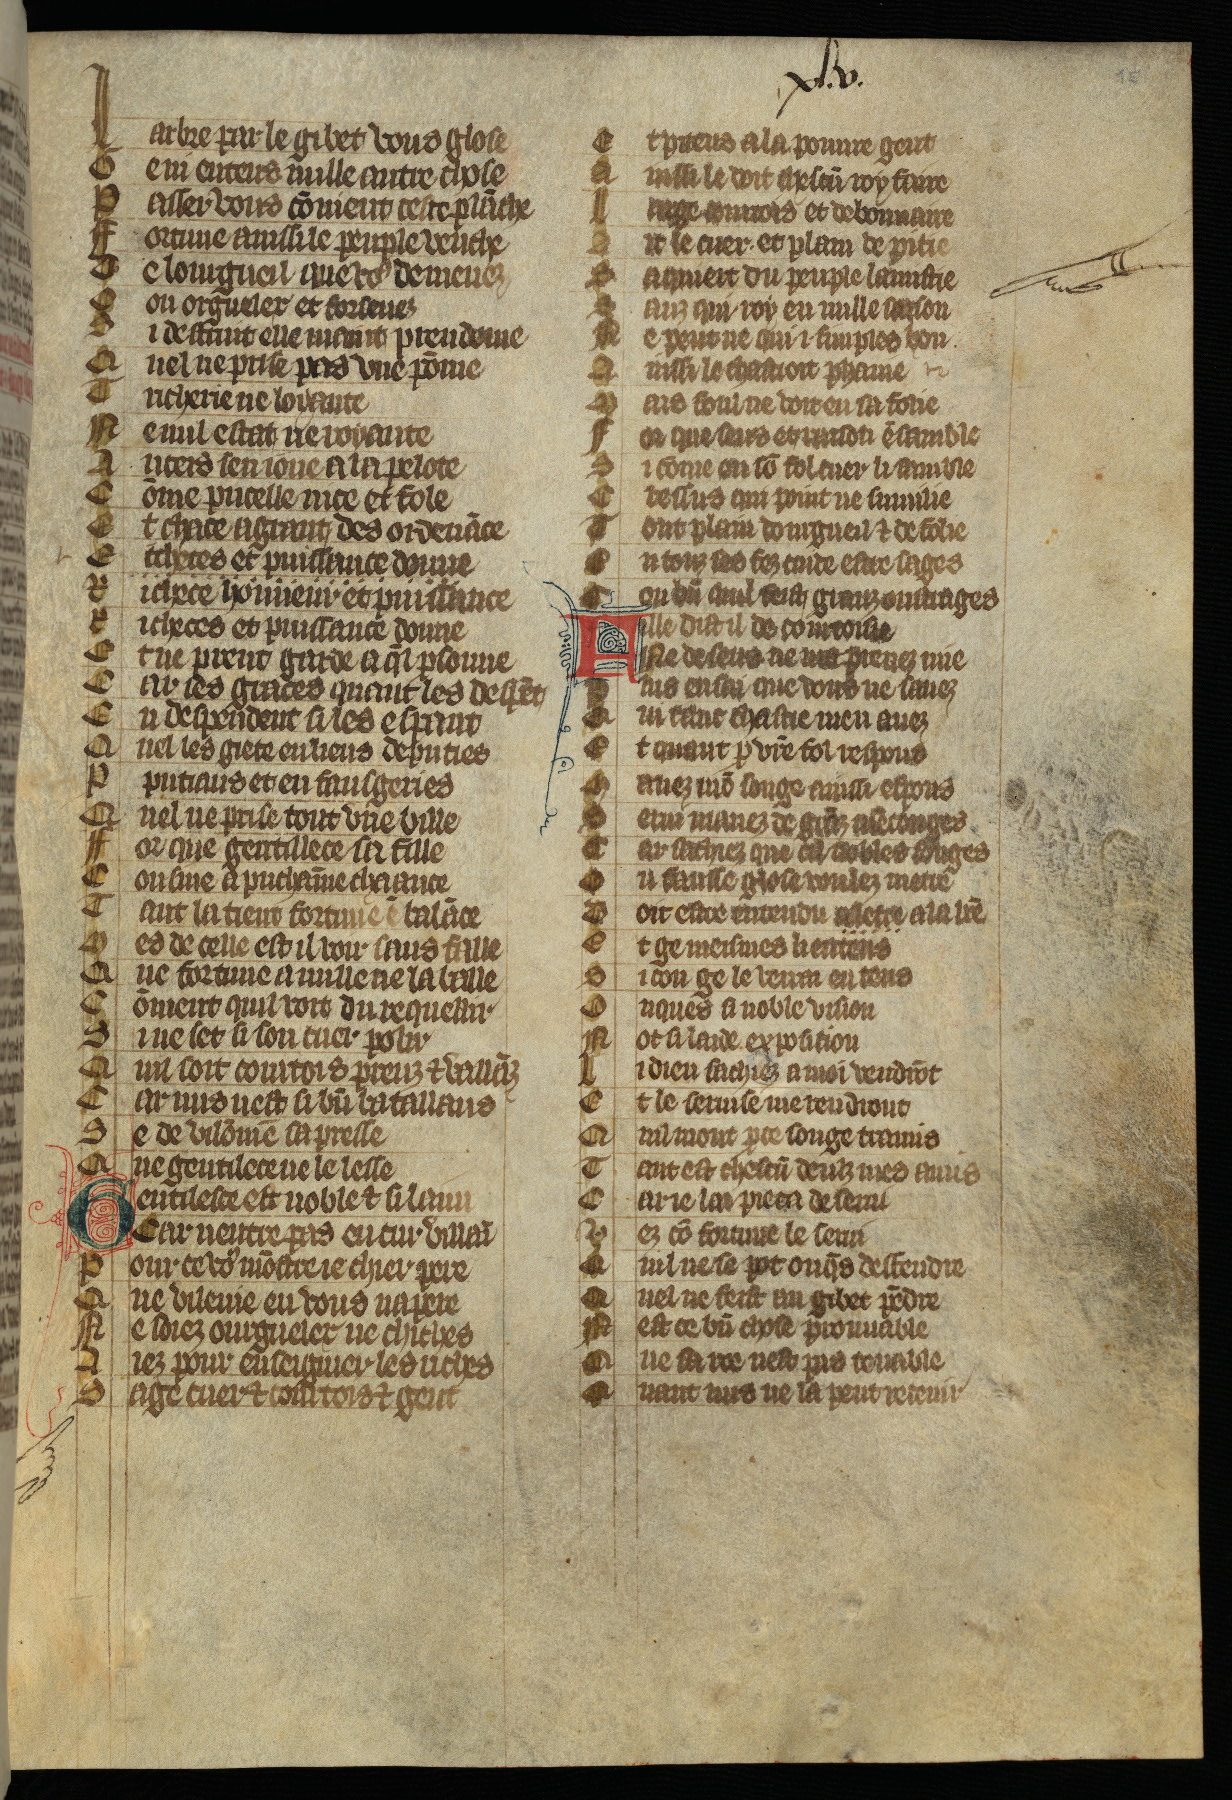 xlv.
L arbre par le gibet vous glose
G e ni entens nulle autre chose
P asser vous cōuient ceste plāche
F ortune aussi le peuple venche
D e lourgueil que vo9 demenez
C on orgueler et forsenez
S i destruit elle maint preudome
Q uel ne prise pas vne pōme
T richerie ne loyaute
N e uil estat ne royaute
A ncers sen ioue a la pelote
C ōme pucelle nice et fole
E t chace a grant des ordenāce
R ichesces et puissance donne
R ichece honneur et puissance
R icheces et puissance donne
E t ne prent garde a q̄l psonne
C ar ses graces quant les despēt
E n despendent si les espant
Q uel les giete en lieus de puties
P putiaus et en faulseries
Q uel ne prise tout vne bille
F or que gentillece sa fille
C ousine a prochaīne cheance
T ant la tient fortune ē balāce
M es de celle est il voir sans faille
Q ue fortune a nulle ne la baille
C ōment quil voit du requellir
S i ne set si son cuer polir
Q uil soit courtois preuz ⁊ vallāz
C ar nus nest si bn̄ bataillans
S e de vilōnie sapresse
Q ue gentilece ne le lesse
G entilesce est noble ⁊ si laim
Car nentre pas en cuer villaī
P our ce vo9 mōstre ie chier pere
Q ue vilenie en vous napere
N e soiez ourgueler ne chiches
A iez pour enseignier les riches
S age cuer ⁊ courtois ⁊ gent
E t piteus a la poure gent
A inssi le doit chescū roy faire
L arge courtois et debonnaire
A it le cuer et plain de pitie
S aquiert du peuple lamistie
S anz qui roy en nulle saison
N e peut ne qui .i. simples hon
A inssi le chastioit phanie
M ais foul ne voit en sa folie
F or que sens et raison ēsamble
S i come en sō fol cuer li samble
C ressus qui point ne sumilie
T out plain dourgueil ⁊ de folie
E n touz ses fez cuide estre sages
C ou bn̄ quil feist granz outrages
F ille dist il de courtoisie
Ne de sens ne me prenez mie
P lus en sai que vous ne sauez
Q ui tant chastie men auez
E t quant p vr̄e fol respons
M auez mō songe ainssi espons
S erui mauez de grāz mēconges
C ar sachiez que cil nobles songes
O u fausse glose voulez metre
D oit estre entendu a la letre
E t ge meismes li entens
S i con ge le verrai en tens
O nques si noble vision
N ot si laide exposition
L i dieu sachiez a moi vendrōt
E t le seruise me rendront
Q uil mont p ce songe tramis
T ant est chescū deulz mes amis
C ar ie lai pieca deserui
V ez cō fortune le serui
Q uil ne se pot onq̄s deffendre
Q uel ne feist au gibet pēdre
N est ce bn̄ chose prouuable
Q ue sa roe nest pas tenable
Q uant nus ne la peut retenir